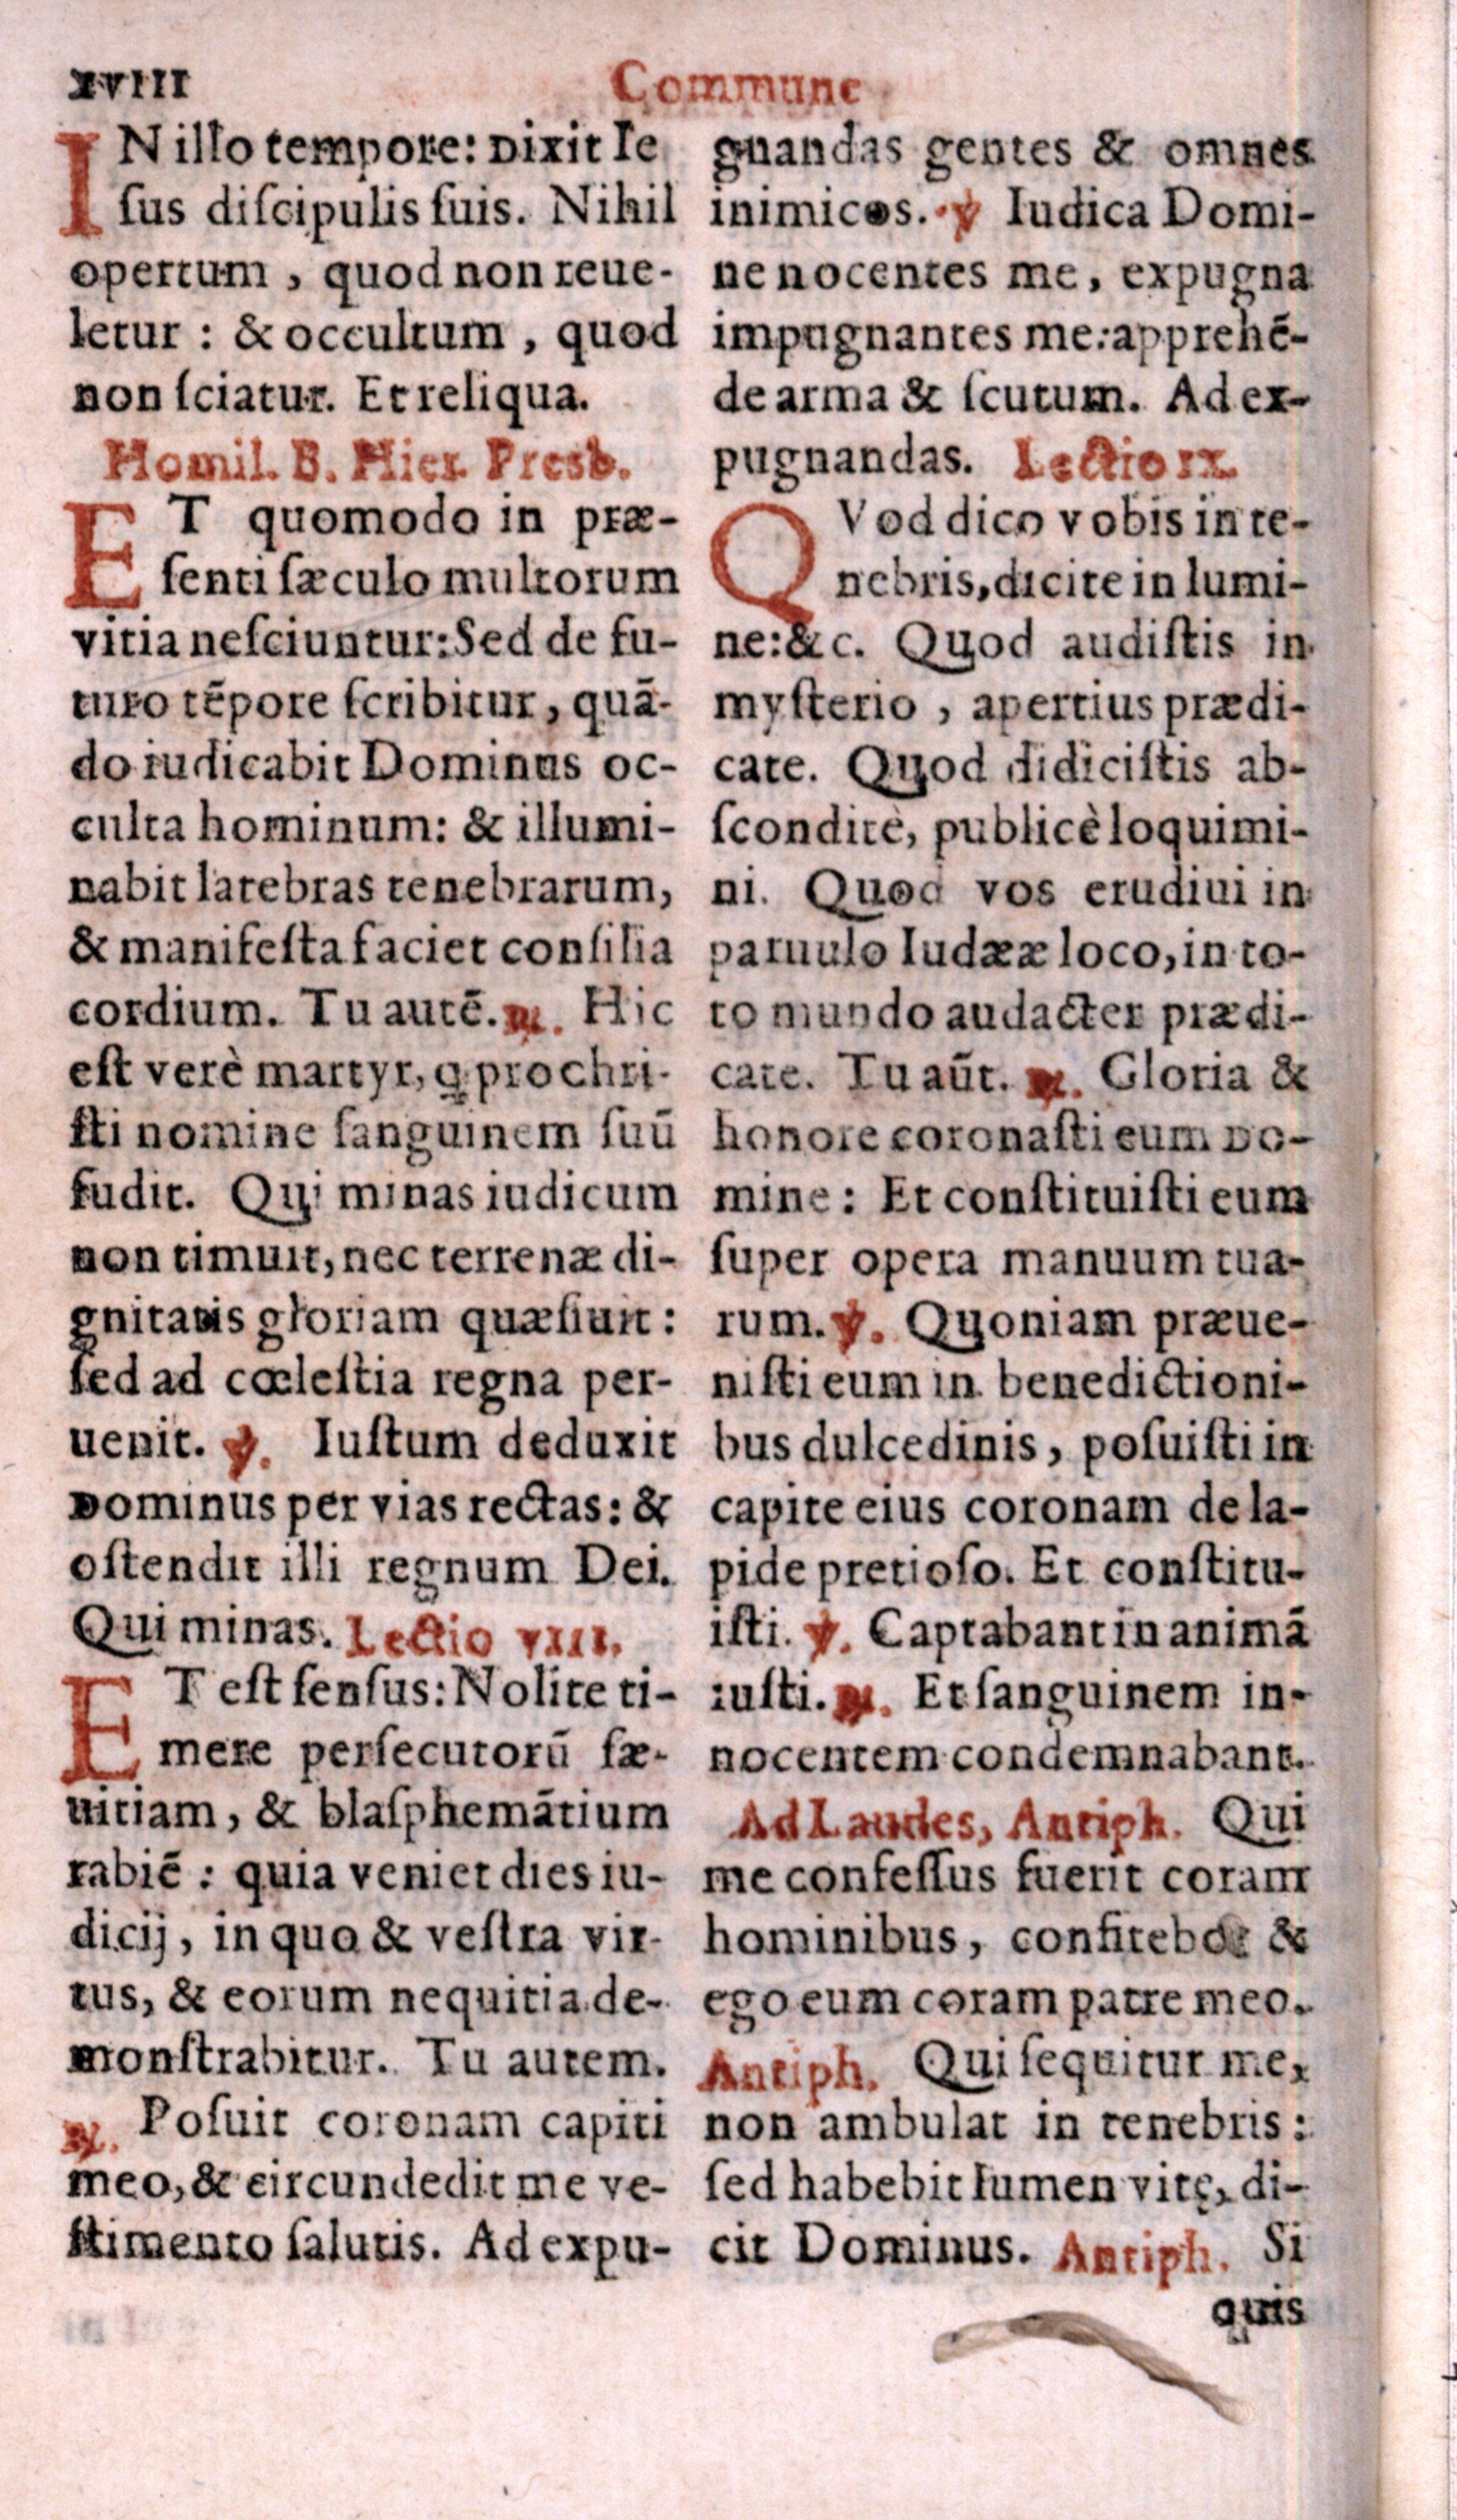 xviii
Commune
IN illo tempore: Dixit Ie
ſus diſcipulis ſuis. Nihil
opertum , quod non reue-
letur : & occultum , quod
non ſciatur. Et reliqua.
Homil. B. Hier. Presb.
ET quomodo in præ-
ſenti ſæculo multorum
vitia neſciuntur: Sed de fu-
turo tēpore ſcribitur, quā-
do iudicabit Dominus oc-
culta hominum: & illumi-
nabit latebras tenebrarum,
& manifeſta faciet conſilia
cordium. Tu autē. ℟. Hic
eſt verè martyr, q pro chri-
ſti nomine ſanguinem ſuū
fudit. Qui minas iudicum
non timuit, nec terrenæ di-
gnitatis gloriam quæſiuit:
ſed ad cœleſtia regna per-
uenit. ℣. Iuſtum deduxit
Dominus per vias rectas: &
oſtendit illi regnum Dei.
Qui minas. Lectio viii.
ET eſt ſenſus: Nolite ti-
mere perſecutorū ſæ-
uitiam, & blaſphemātium
rabiē : quia veniet dies iu-
dicij, in quo & veſtra vir-
tus, & eorum nequitia de-
monſtrabitur. Tu autem.
℟. Poſuit coronam capiti
meo, & circundedit me ve-
ſtimento ſalutis. Ad expu-
gnandas gentes & omnes
inimicos. ℣ Iudica Domi-
ne nocentes me, expugna
impugnantes me: apprehē-
de arma & ſcutum. Ad ex-
pugnandas. Lectio ix.
QVod dico vobis in te-
nebris, dicite in lumi-
ne: &c. Quod audiſtis in
myſterio , apertius prædi-
cate. Quod didiciſtis ab-
ſconditè, publicè loquimi-
ni. Quod vos erudiui in
paruulo Iudææ loco, in to-
to mundo audacter prædi-
cate. Tu aūt. ℟. Gloria &
honore coronaſti eum Do-
mine: Et conſtituiſti eum
ſuper opera manuum tua-
rum. ℣. Quoniam præue-
niſti eum in benedictioni-
bus dulcedinis, poſuiſti in
capite eius coronam de la-
pide pretioſo. Et conſtitu-
iſti. ℣. Captabant in animā
iuſti. ℟. Et ſanguinem in-
nocentem condemnabant.
Ad Laudes, Antiph. Qui
me confeſſus fuerit coram
hominibus, confitebor &
ego eum coram patre meo.
Antiph. Qui ſequitur me,
non ambulat in tenebris:
ſed habebit lumen vitę, di-
cit Dominus. Antiph. Si
quis